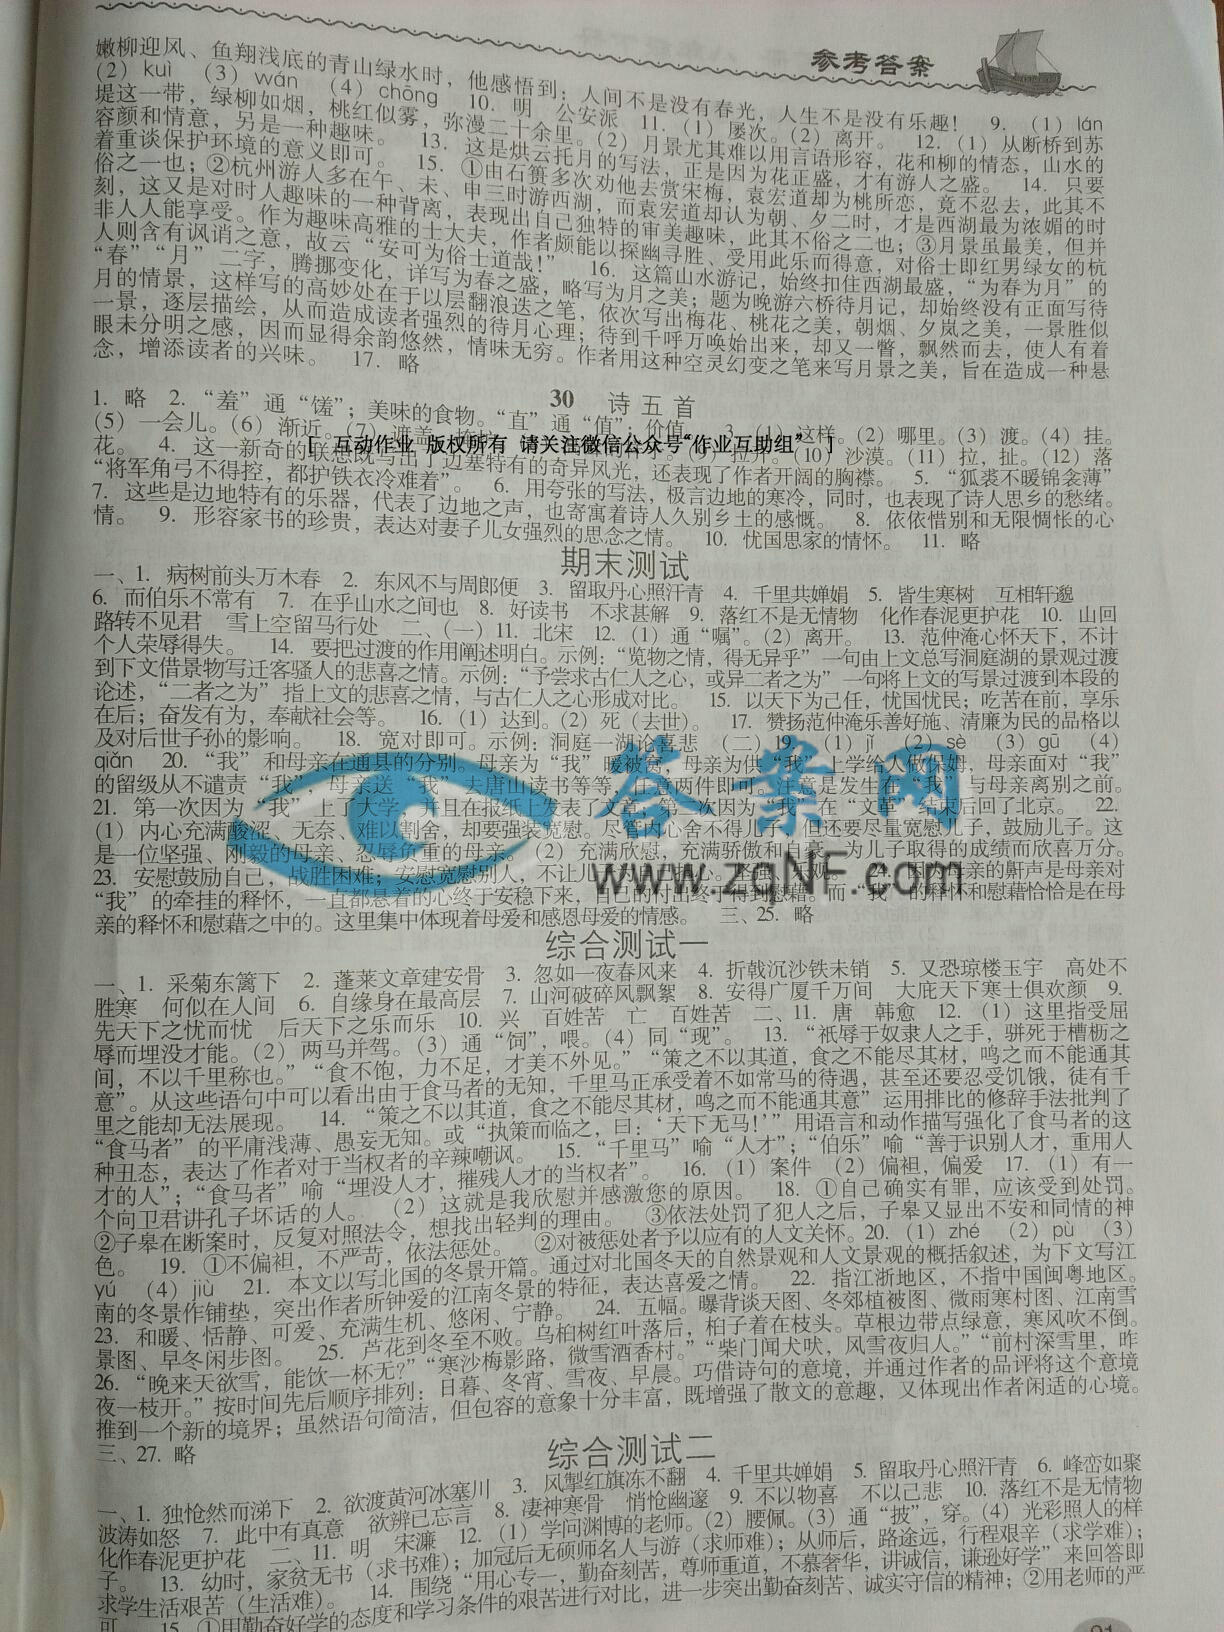 参考答案
嫩柳迎风、鱼翔浅底的青山绿水时，他感悟到：人间不是没有春光，人生不是没有乐趣！ 9. （1）lán
（2）kuì （3）wán （4）chōng 10. 明 公安派 11.（1）屡次。（2）离开。 12.（1）从断桥到苏
堤这一带，绿柳如烟，桃红似雾，弥漫二十余里。（2）月景尤其难以用言语形容，花和柳的情态，山水的
容颜和情意，另是一种趣味。 13. 这是烘云托月的写法，正是因为花正盛，才有游人之盛。 14. 只要
着重谈保护环境的意义即可。 15. ①由石篑多次劝他去赏宋梅，袁宏道却为桃所恋，竟不忍去，此其不
俗之一也；②杭州游人多在午、未、申三时游西湖，而袁宏道却认为朝、夕二时，才是西湖最为浓媚的时
刻，这又是对时人趣味的一种背离，表现出自己独特的审美趣味，此其不俗之二也；③月景虽最美，但并
非人人能享受。作为趣味高雅的士大夫，作者颇能以探幽寻胜、受用此乐而得意，对俗士即红男绿女的杭
人则含有讽诮之意，故云“安可为俗士道哉！” 16. 这篇山水游记，始终扣住西湖最盛，“为春为月”的
“春”“月”二字，腾挪变化，详写为春之盛，略写为月之美；题为晚游六桥待月记，却始终没有正面写待
月的情景，这样写的高妙处在于以层翻浪迭之笔，依次写出梅花、桃花之美，朝烟、夕岚之美，一景胜似
一景，逐层描绘，从而造成读者强烈的待月心理；待到千呼万唤始出来，却又一瞥，飘然而去，使人有着
眼未分明之感，因而显得余韵悠然，情味无穷。作者用这种空灵幻变之笔来写月景之美，旨在造成一种悬
念，增添读者的兴味。 17. 略
30 诗五首
1. 略 2. “羞”通“馐”；美味的食物。“直”通“值”；价值。 3.（1）这样。（2）哪里。（3）渡。（4）挂。
（5）一会儿。（6）渐近。（7）遮盖，
[ 互动作业 版权所有 请关注微信公众号“作业互助组” ]
（10）沙漠。（11）拉，扯。（12）落
花。 4. 这一新奇的联想既写出了边塞特有的奇异风光，还表现了作者开阔的胸襟。 5. “狐裘不暖锦衾薄”
“将军角弓不得控，都护铁衣冷难着”。 6. 用夸张的写法，极言边地的寒冷，同时，也表现了诗人思乡的愁绪。
7. 这些是边地特有的乐器，代表了边地之声，也寄寓着诗人久别乡土的感慨。 8. 依依惜别和无限惆怅的心
情。 9. 形容家书的珍贵，表达对妻子儿女强烈的思念之情。 10. 忧国思家的情怀。 11. 略
期末测试
一、1. 病树前头万木春 2. 东风不与周郎便 3. 留取丹心照汗青 4. 千里共婵娟 5. 皆生寒树 互相轩邈
6. 而伯乐不常有 7. 在乎山水之间也 8. 好读书 不求甚解 9. 落红不是无情物 化作春泥更护花 10. 山回
路转不见君 雪上空留马行处 二、（一）11. 北宋 12.（1）通“嘱”。（2）离开。 13. 范仲淹心怀天下，不计
个人荣辱得失。 14. 要把过渡的作用阐述明白。示例：“览物之情，得无异乎”一句由上文总写洞庭湖的景观过渡
到下文借景物写迁客骚人的悲喜之情。示例：“予尝求古仁人之心，或异二者之为”一句将上文的写景过渡到本段的
论述，“二者之为”指上文的悲喜之情，与古仁人之心形成对比。 15. 以天下为己任，忧国忧民；吃苦在前，享乐
在后；奋发有为，奉献社会等。 16.（1）达到。（2）死（去世）。 17. 赞扬范仲淹乐善好施、清廉为民的品格以
及对后世子孙的影响。 18. 宽对即可。示例：洞庭一湖论喜悲 （二）19. （1）jǐ （2）sè （3）gū （4）
qiǎn 20. “我”和母亲在通县的分别。母亲为“我”暖被窝，母亲为供“我”上学给人做保姆，母亲面对“我”
的留级从不谴责“我”，母亲送“我”去唐山读书等等，任意两件即可。注意是发生在“我”与母亲离别之前。
21. 第一次因为“我”上了大学，并且在报纸上发表了文章；第二次因为“我”在“文革”结束后回了北京。 22.
（1）内心充满酸涩、无奈、难以割舍，却要强装宽慰。尽管内心舍不得儿子，但还要尽量宽慰儿子，鼓励儿子。这
是一位坚强、刚毅的母亲、忍辱负重的母亲。（2）充满欣慰，充满骄傲和自豪，为儿子取得的成绩而欣喜万分。
23. 安慰鼓励自己，战胜困难；安慰宽慰别人，不让儿子为自己担心。坚强、乐观。 24. 因为母亲的鼾声是母亲对
“我”的牵挂的释怀，一直都悬着的心终于安稳下来，自己的付出终于得到慰藉。而“我”的释怀和慰藉恰恰是在母
亲的释怀和慰藉之中的。这里集中体现着母爱和感恩母爱的情感。 三、25. 略
答案网
www.zqNF.com
综合测试一
一、1. 采菊东篱下 2. 蓬莱文章建安骨 3. 忽如一夜春风来 4. 折戟沉沙铁未销 5. 又恐琼楼玉宇 高处不
胜寒 何似在人间 6. 自缘身在最高层 7. 山河破碎风飘絮 8. 安得广厦千万间 大庇天下寒士俱欢颜 9.
先天下之忧而忧 后天下之乐而乐 10. 兴 百姓苦 亡 百姓苦 二、11. 唐 韩愈 12. （1）这里指受屈
辱而埋没才能。（2）两马并驾。（3）通“饲”，喂。（4）同“现”。 13. “祇辱于奴隶人之手，骈死于槽枥之
间，不以千里称也。”“食不饱，力不足，才美不外见。”“策之不以其道，食之不能尽其材，鸣之而不能通其
意”。从这些语句中可以看出由于食马者的无知，千里马正承受着不如常马的待遇，甚至还要忍受饥饿，徒有千
里之能却无法展现。 14. “策之不以其道，食之不能尽其材，鸣之而不能通其意”运用排比的修辞手法批判了
“食马者”的平庸浅薄、愚妄无知。或“执策而临之，曰：‘天下无马！’”用语言和动作描写强化了食马者的这
种丑态，表达了作者对于当权者的辛辣嘲讽。 15. “千里马”喻“人才”；“伯乐”喻“善于识别人才，重用人
才的人”；“食马者”喻“埋没人才，摧残人才的当权者”。 16. （1）案件 （2）偏袒，偏爱 17. （1）有一
个向卫君讲孔子坏话的人。 （2）这就是我欣慰并感激您的原因。 18. ①自己确实有罪，应该受到处罚。
②子皋在断案时，反复对照法令，想找出轻判的理由。 ③依法处罚了犯人之后，子皋又显出不安和同情的神
色。 19. ①不偏袒，不严苛，依法惩处。 ②对被惩处者予以应有的人文关怀。20.（1）zhé （2）pù （3）
yú （4）jiù 21. 本文以写北国的冬景开篇。通过对北国冬天的自然景观和人文景观的概括叙述，为下文写江
南的冬景作铺垫，突出作者所钟爱的江南冬景的特征，表达喜爱之情。 22. 指江浙地区，不指中国闽粤地区。
23. 和暖、恬静、可爱、充满生机、悠闲、宁静。 24. 五幅。曝背谈天图、冬郊植被图、微雨寒村图、江南雪
景图、早冬闲步图。 25. 芦花到冬至不败。乌桕树红叶落后，桕子着在枝头。草根边带点绿意，寒风吹不倒。
26. “晚来天欲雪，能饮一杯无？”“寒沙梅影路，微雪酒香村。”“柴门闻犬吠，风雪夜归人。”“前村深雪里，昨
夜一枝开。”按时间先后顺序排列：日暮、冬宵、雪夜、早晨。巧借诗句的意境，并通过作者的品评将这个意境
推到一个新的境界；虽然语句简洁，但包容的意象十分丰富，既增强了散文的意趣，又体现出作者闲适的心境。
三、27. 略
综合测试二
一、1. 独怆然而涕下 2. 欲渡黄河冰塞川 3. 风掣红旗冻不翻 4. 千里共婵娟 5. 留取丹心照汗青 6. 峰峦如聚
波涛如怒 7. 此中有真意 欲辨已忘言 8. 凄神寒骨 悄怆幽邃 9. 不以物喜 不以己悲 10. 落红不是无情物
化作春泥更护花 二、11. 明 宋濂 12. （1）学问渊博的老师。（2）腰佩。（3）通“披”，穿。（4）光彩照人的样
子。 13. 幼时，家贫无书（求书难）；加冠后无硕师名人与游（求师难）；从师后，路途远，行程艰辛（求学难）；
求学生活艰苦（生活难）。 14. 围绕“用心专一，勤奋刻苦，尊师重道，不慕奢华，讲诚信，谦逊好学”来回答即
可。 15. ①用勤奋好学的态度和学习条件的艰苦进行对比，进一步突出勤奋刻苦、诚实守信的精神；②用老师的严
91